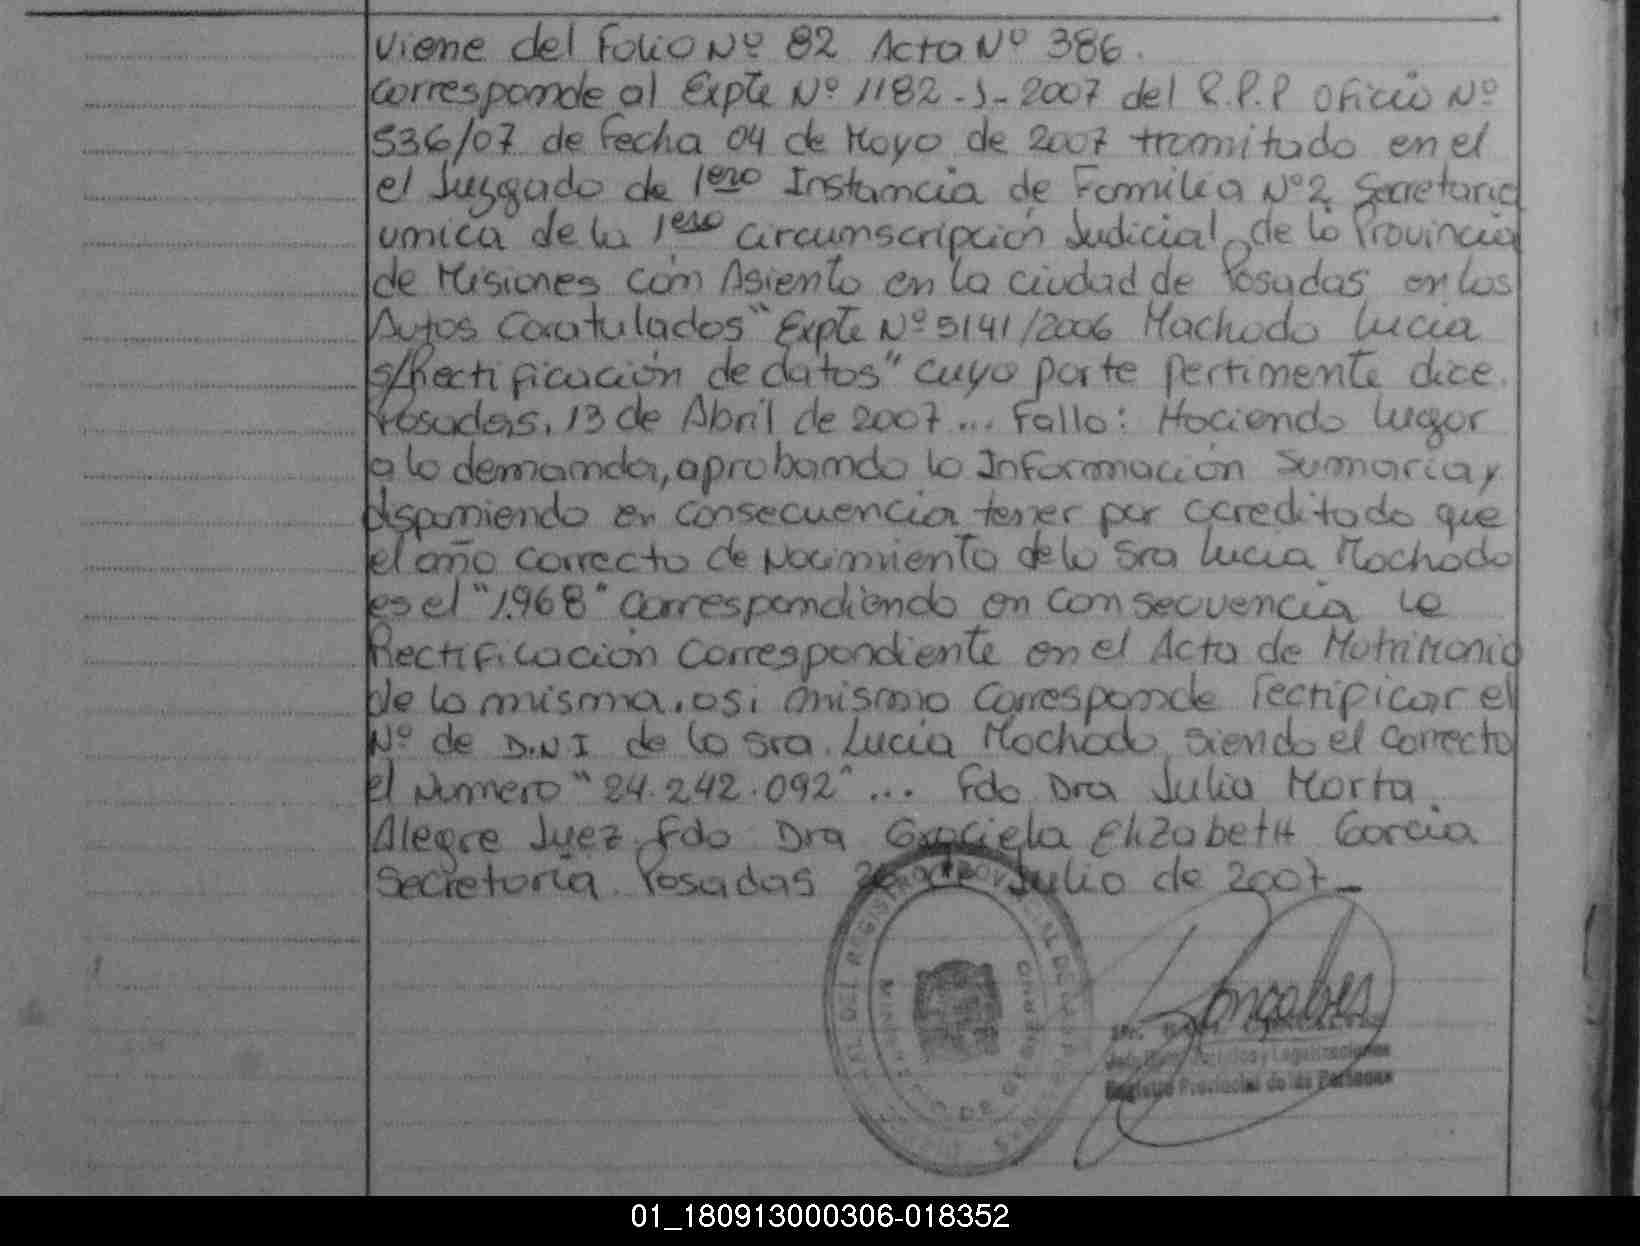 Viene del Folio Nº 82 Acta Nº 386.
Corresponde al Expte Nº 1182-J-2007 del R.P.P Oficio Nº
536/07 de Fecha 04 de Mayo de 2007 tramitado en el
el Juzgado de 1era Instancia de Familia Nº 2 Secretaria
unica de la 1era circunscripción Judicial de la Provincia
de Misiones con Asiento en la ciudad de Posadas en los
Autos Caratulados "Expte Nº 5141/2006 Machado Lucia
s/Rectificación de datos" cuya parte pertinente dice.
Posadas, 13 de Abril de 2007... Fallo: Haciendo lugar
a la demanda, aprobando la Información sumaria y
disponiendo en consecuencia tener por acreditado que
el año correcto de Nacimiento de la Sra Lucia Machado
es el "1.968" Correspondiendo en consecuencia la
Rectificación Correspondiente en el Acta de Matrimonio
de la misma. asi mismo corresponde rectificar el
Nº de D.N.I de la Sra. Lucia Machado siendo el correcto
el Numero "24.242.092"... Fdo Dra Julia Marta
Alegre Juez Fdo Dra Graciela Elizabeth Garcia
Secretaria. Posadas Julio de 2007_
Registro Provincial de las Personas
01_180913000306-018352